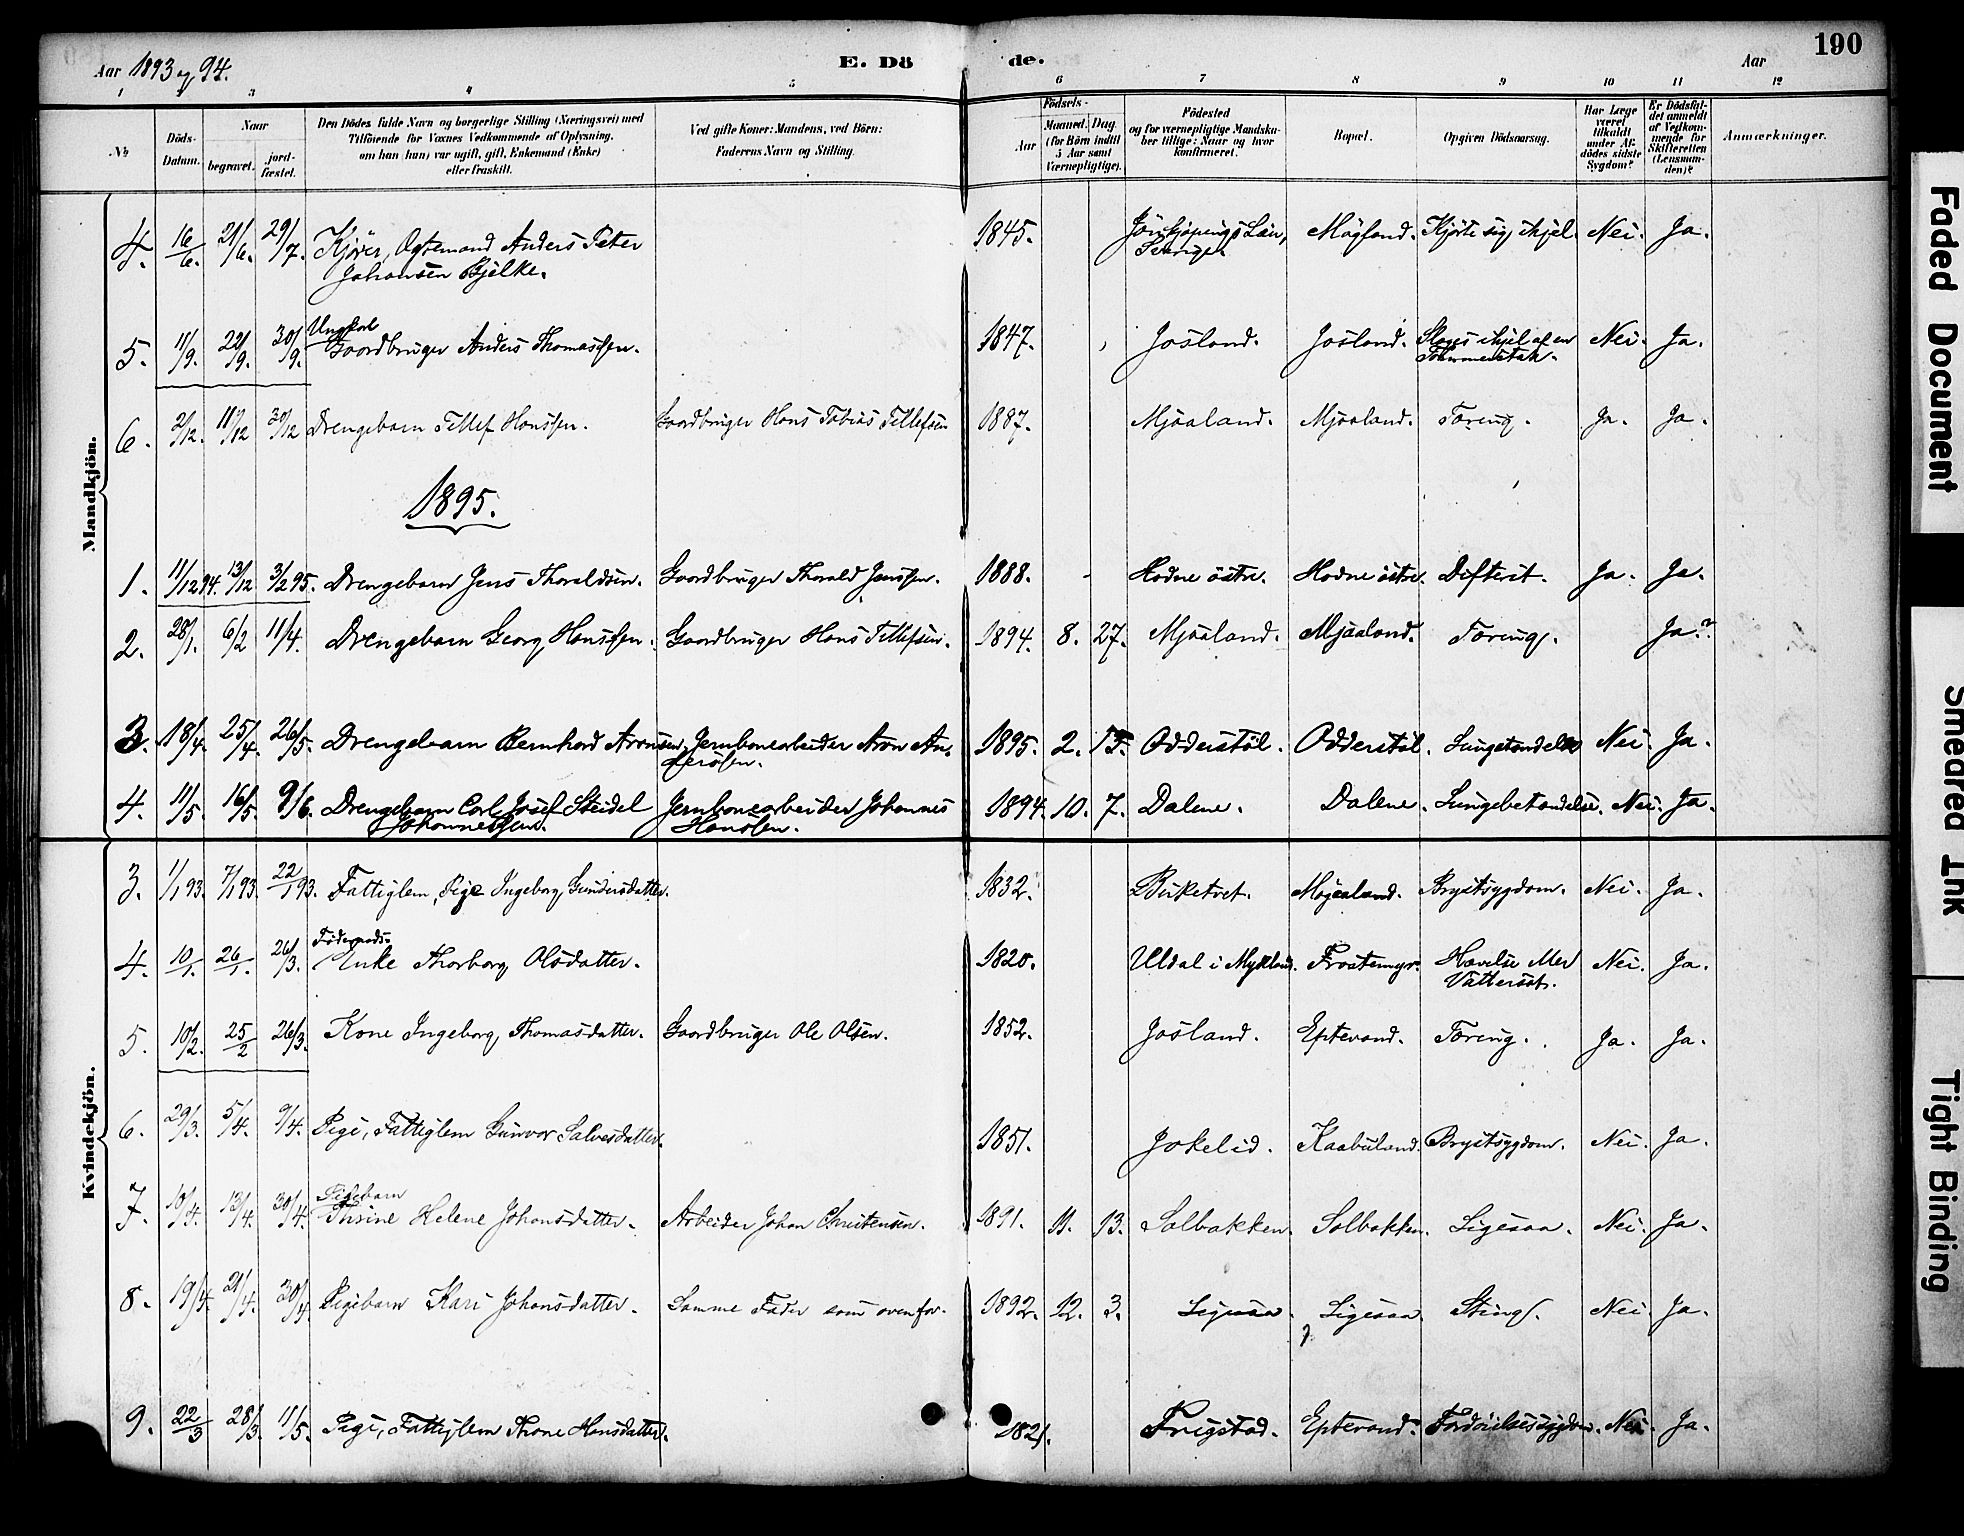 Aar 1893 og 94.
E. Dö
de.
Aar
190
1 2 3 4 5 6 7 8 9 10 11 12
№
Döds-Datum.
Naar
begravet.
jord-fæstet.
Den Dödes fulde Navn og borgerlige Stilling (Næringsvei) med
Tilföiende for Voxnes Vedkommende af Oplysning,
om han (hun) var ugift, gift, Enkemand (Enke)
eller fraskilt.
Ved gifte Koner: Mandens, ved Börn:
Faderens Navn og Stilling.
Födsels-
Aar
Maaned. Dag.
(for Börn indtil
5 Aar samt
Værnepligtige).
Födested
og for værnepligtige Mandska-
ber tillige: Naar og hvor
konfirmeret.
Bopæl.
Opgiven Dödsaarsag.
Har Læge
været
tilkaldt
under Af-
dödes sidste
Sygdom?
Er Dödsfal-
det anmeldt
af Vedkom-
mende for
Skifteretten
(Lensman-
den)?
Anmærkninger.
Mandkjön.
4. 16/6. 21/6. 29/7. Kjører, Ægtemand Anders Peter 1845. Jönkjöpings Län, Mögland. Kjørte sig ihjel. Nei. Ja.
Johansen Bjelke. Sverige.
Ungkarl
5. 11/9. 22/9. 30/9. Gaardbruger Anders Thomassen. 1847. Josland. Josland. Sloges ihjel af en Nei. Ja.
Tømmerstok.
6. 2/12. 11/12 30/12 Drengebarn Tellef Hanssen. Gaardbruger Hans Tobias Tellefsen 1887. Mjaaland. Mjaaland. Tæring. Ja. Ja.
1895.
1. 11/12 94. 13/12 3/2 95. Drengebarn Jens Thoraldsen. Gaardbruger Thorald Jenssen. 1888. Hodne östre. Hodne östre. Difterit. Ja. Ja.
2. 28/1. 6/2 11/4. Drengebarn Georg Hanssen. Gaardbruger Hans Tellefsen. 1894. 8. 27. Mjaaland. Mjaaland. Tæring. Ja.?
3. 18/4. 25/4. 26/5. Drengebarn Bernhard Aronsen. Jernbanearbeider Aron An- 1895. 2. Odderstøl. Odderstøl. Nei. Ja.
derssen.
4. 11/5. 16/5. 9/6. Drengebarn Carl Josef Steidel Jernbanearbeider Johannes 1894. 10. 7. Dalene. Dalene. Lungebetændelse. Nei. Ja.
Johannessen. Hanssen.
Kvindekjön.
3. 1/1 93. 7/1 93. 22/1 93. Fattiglem, Pige Ingeborg Gundersdatter. 1832. Birketvet. Mojaaland. Brystsygdom. Nei. Ja.
Føderaads-
4. 10/1. 26/1. 26/3. Enke Thorborg Olsdatter. 1820. Uldal i Mykland. Frostemyr. Hævelse Med Nei. Ja.
Vattersot.
5. 10/2. 25/2 26/3. Kone Ingeborg Thomasdatter. Gaardbruger Ole Olsen. 1852. Josland. Eptevand. Tæring. Ja. Ja.
6. 29/3. 5/4. 9/4. Pige, Fattiglem Gunvor Salvesdatter. 1851. Jokelid. Kaabuland. Brystsygdom. Nei. Ja.
Pigebarn
7. 10/4. 13/4. 30/4. Thrine Helene Johansdatter. Arbeider Johan Christensen. 1891. 11. 13. Solbakken. Solbakken. Ligesaa. Nei. Ja.
8. 19/4. 21/4. 30/4. Pigebarn Kari Johansdatter. Samme Fader som ovenfor. 1892. 12. 3. Ligesaa. Ligesaa. Sting. Nei. Ja.
9. 22/3 28/3. 11/5. Pige, Fattiglem Thone Hansdatter. 1821. Frigstad. Eptevand. Fordøielsessygdom. Nei. Ja.
Faded Document
Smeared Ink
Tight Binding